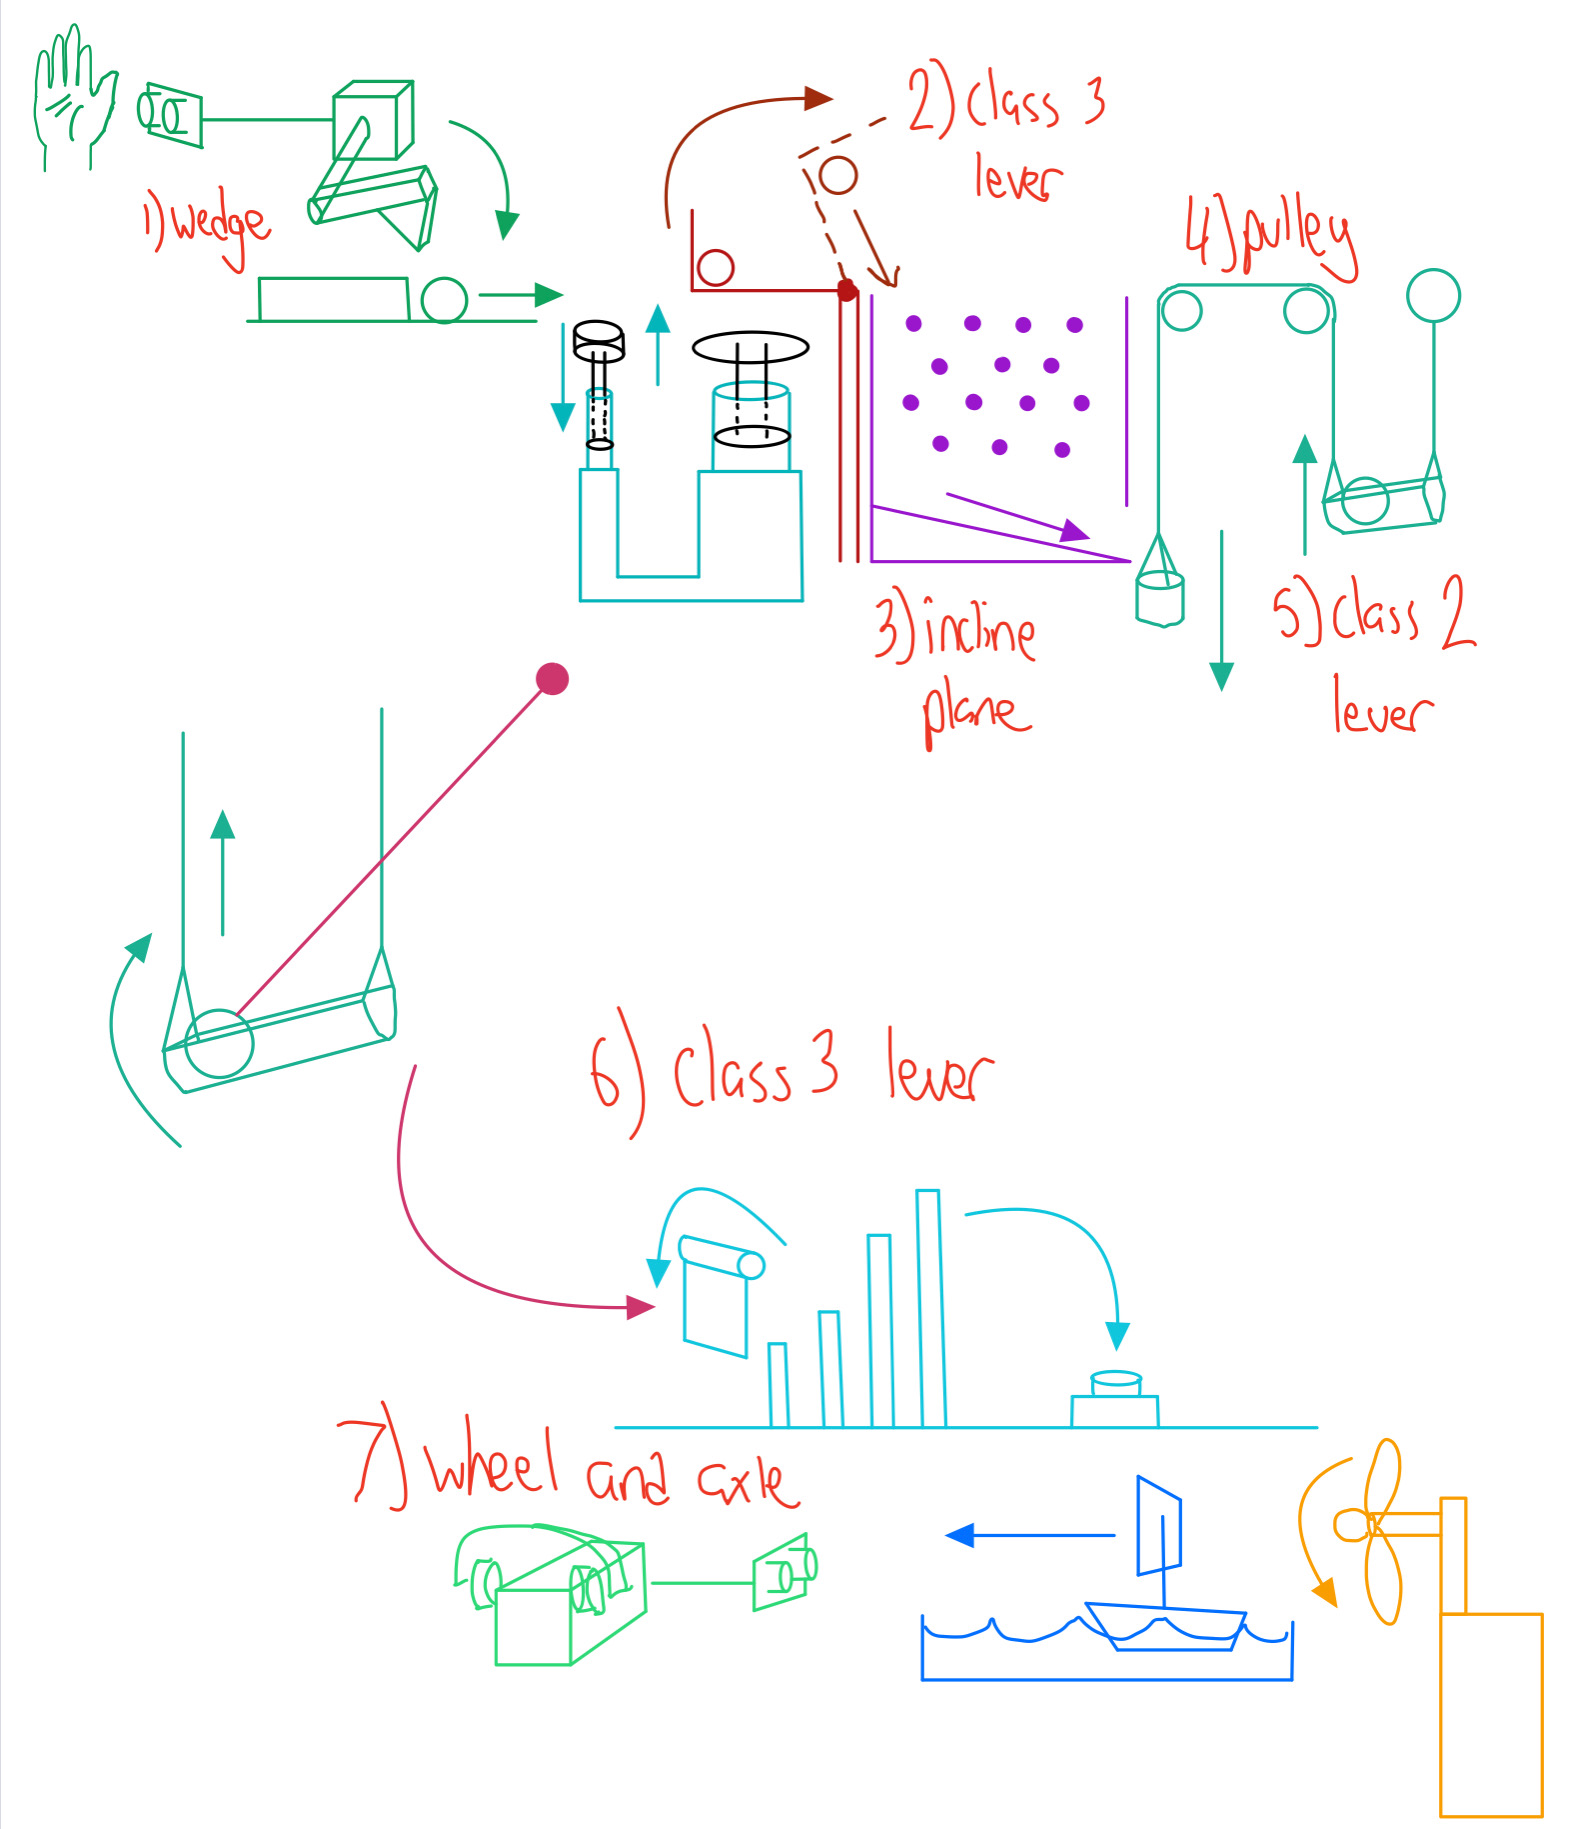 1) wedge
2) class 3
lever
3) incline
plane
4) pulley
5) class 2
lever
6) class 3 lever
7) wheel and axle